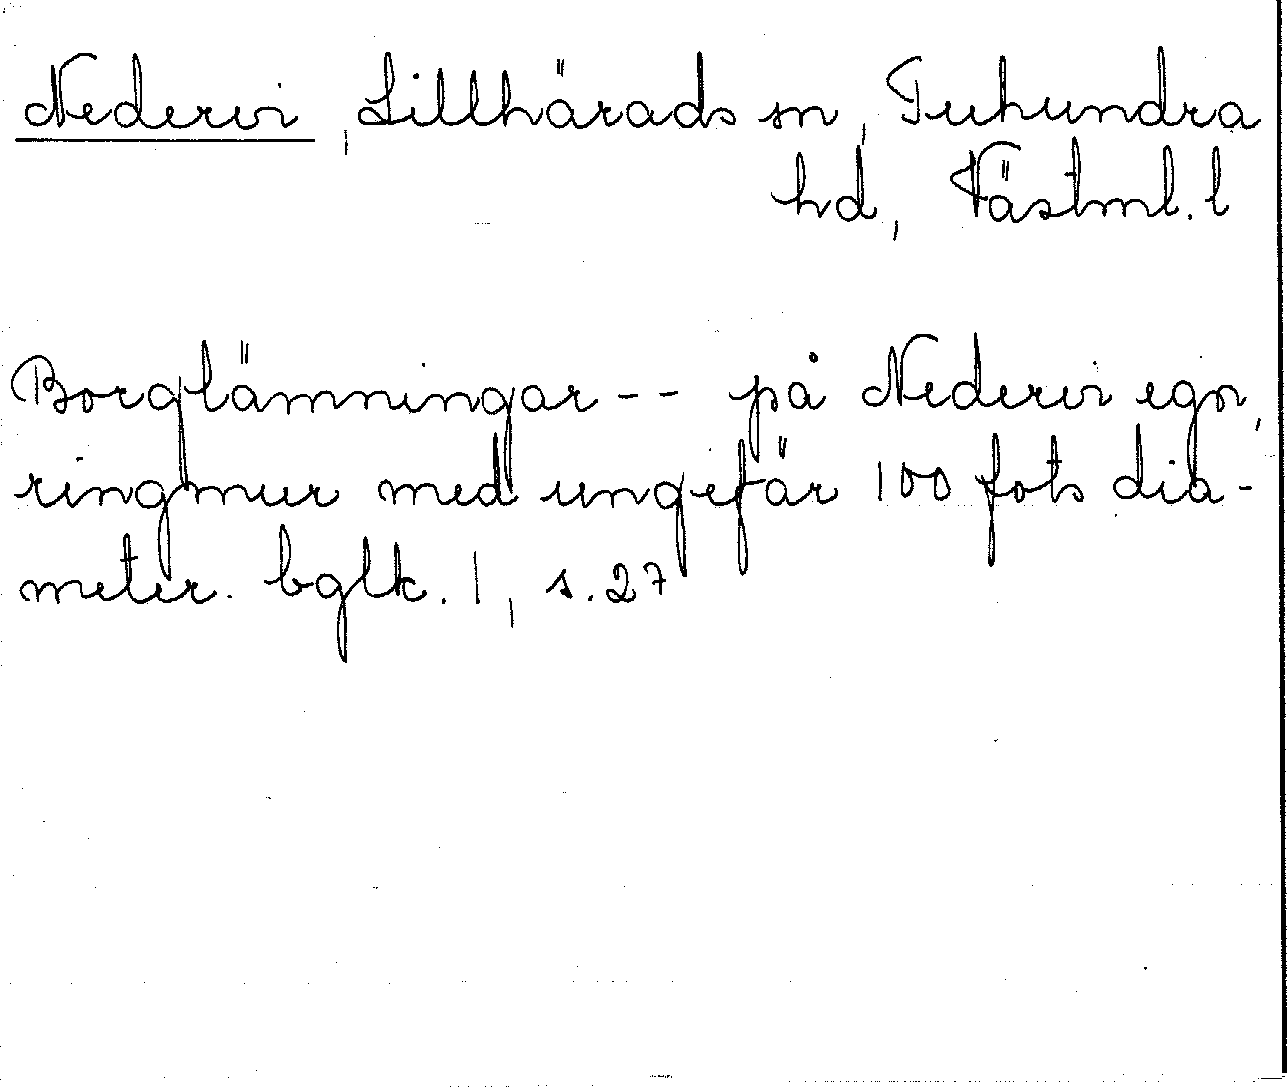 Nedervi, Lillhärads sn, Tuhundra
hd, Västml. l
Borglämningar -- på Nedervi egor,
ringmur med ungefär 100 fots dia-
meter. bglk. 1, s. 27